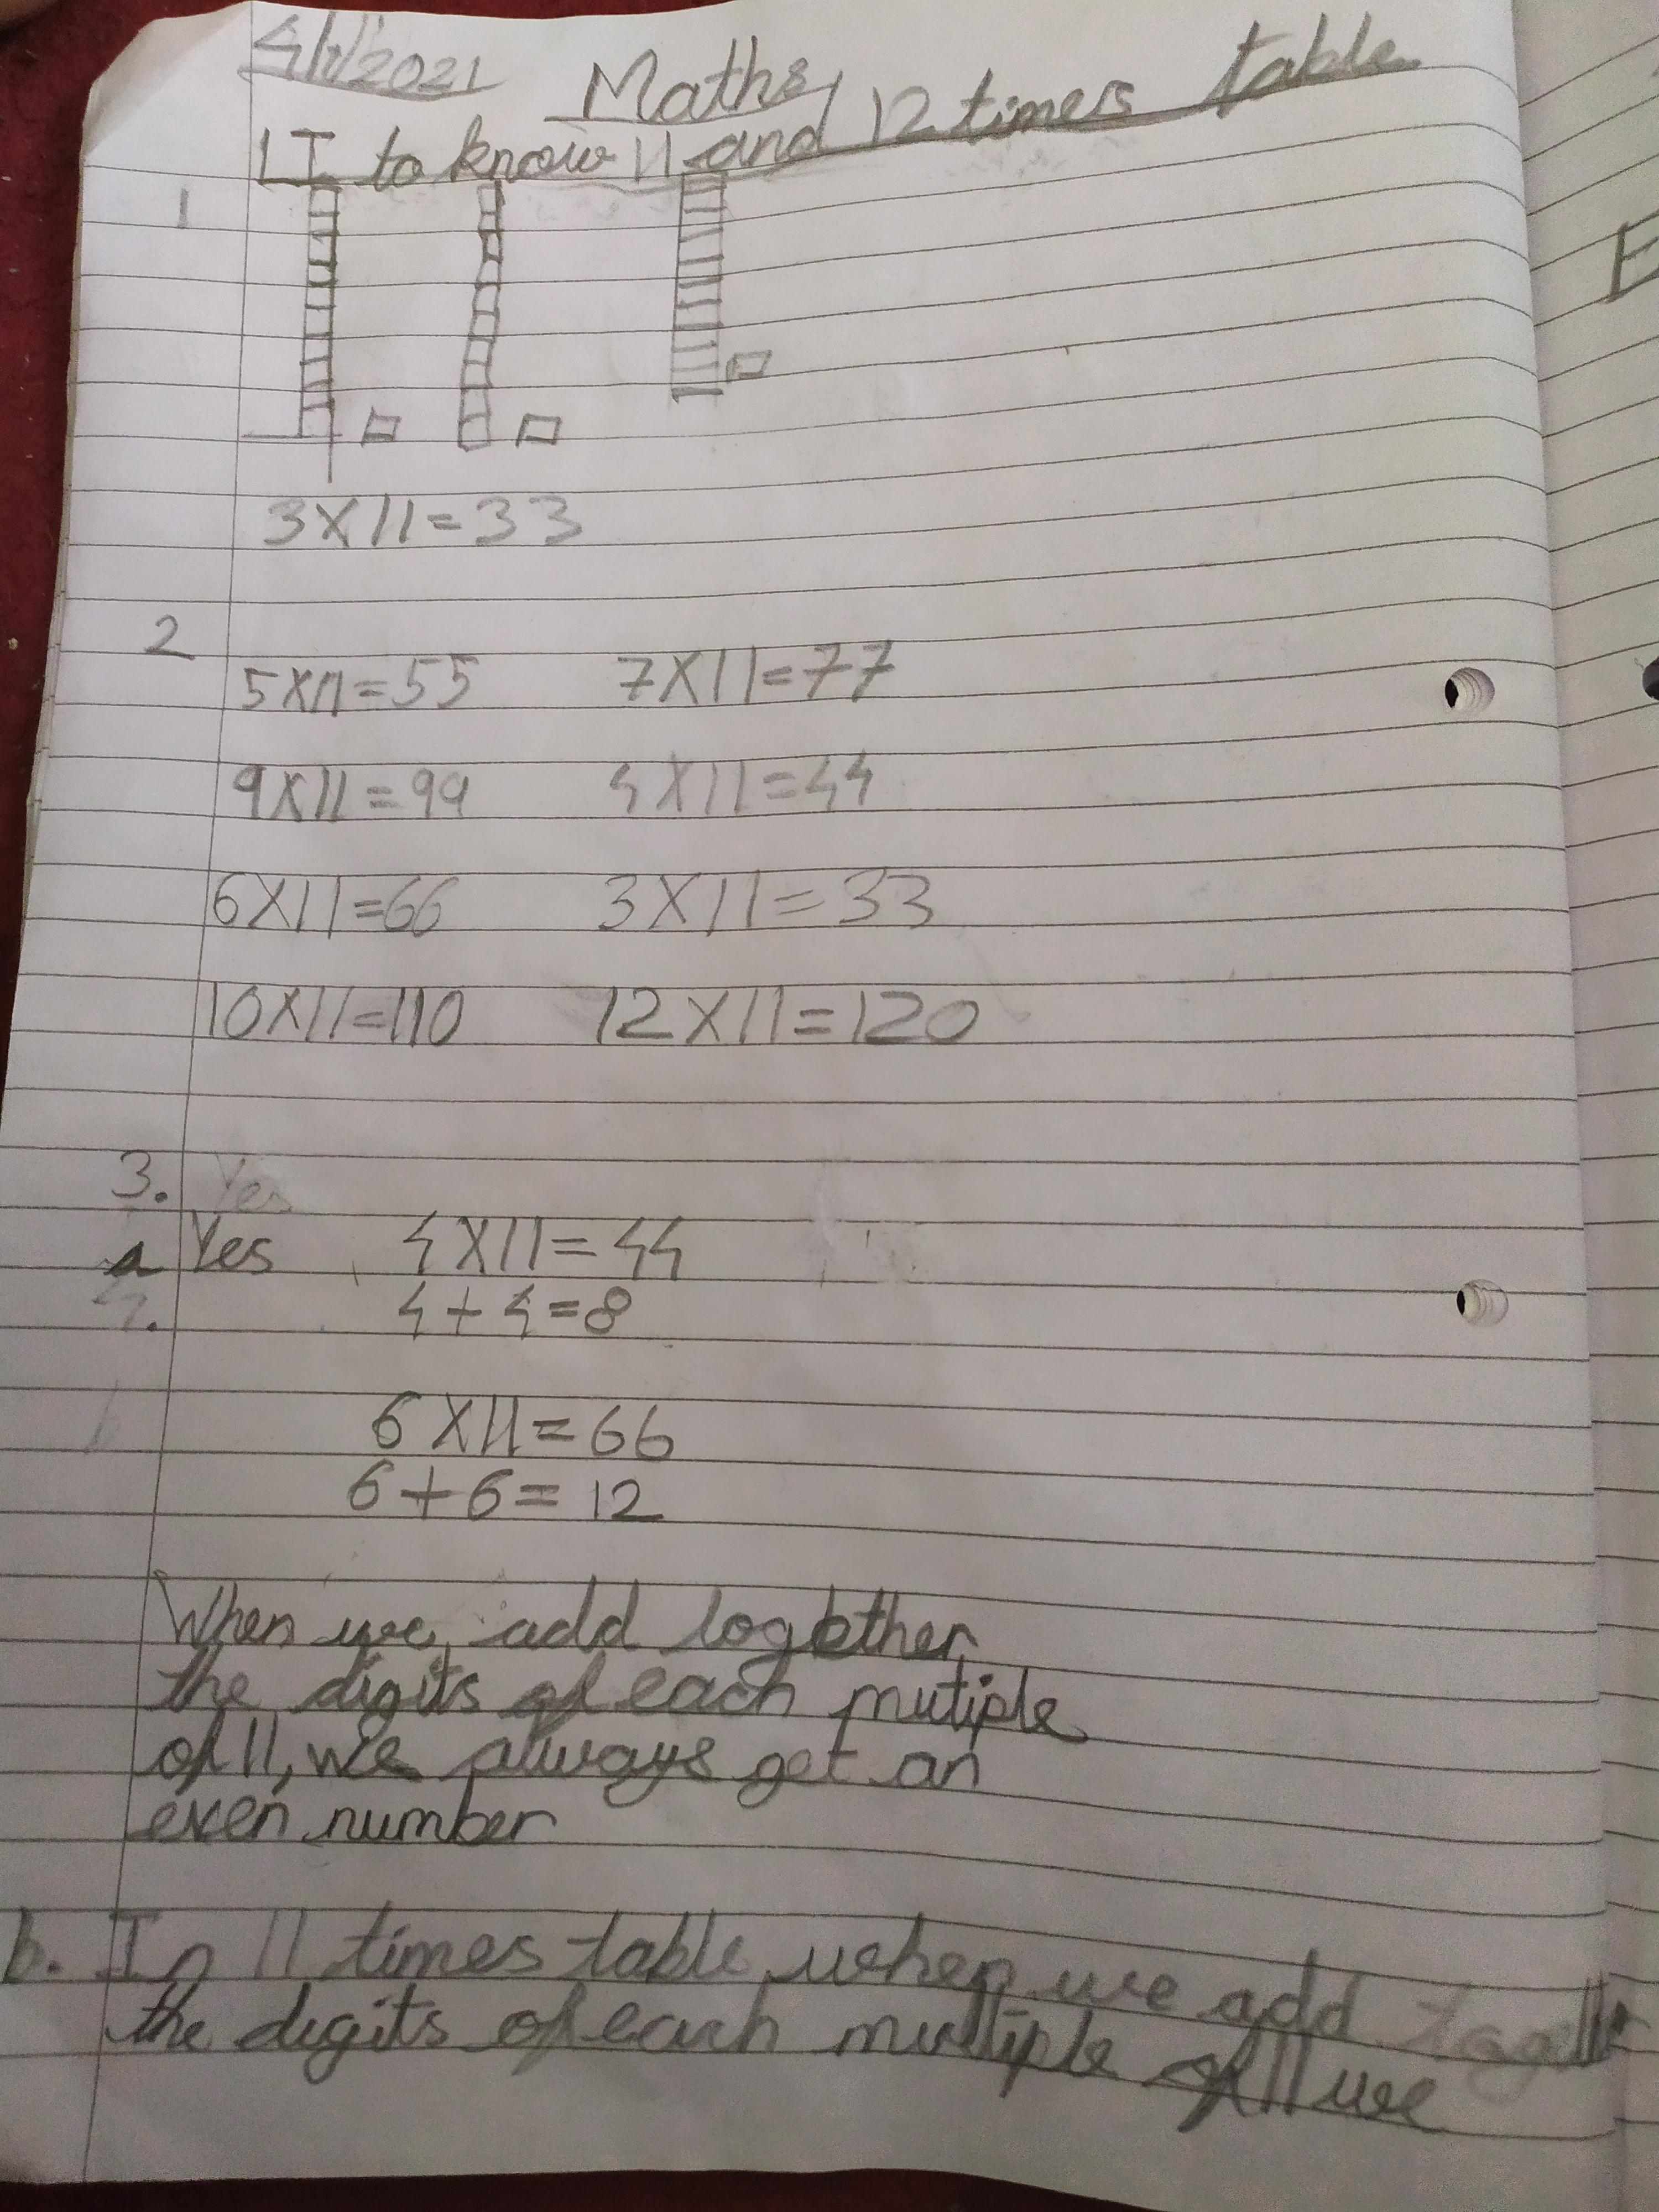 Maths
LI to know 11 and 12 times table
1
3X11=33
2
5X11=55 7X11=77
9X11=99 4X11=44
6X11=66 3X11=33
10X11=110 12X11=120
3. Yes
a Yes 4X11=44
4. 4+4=8
b 6X11=66
6+6=12
When we add together
the digits of each mutiple
of 11, we always get an
even number
b. In 11 times table when we add
the digits of each multiple of 11 we